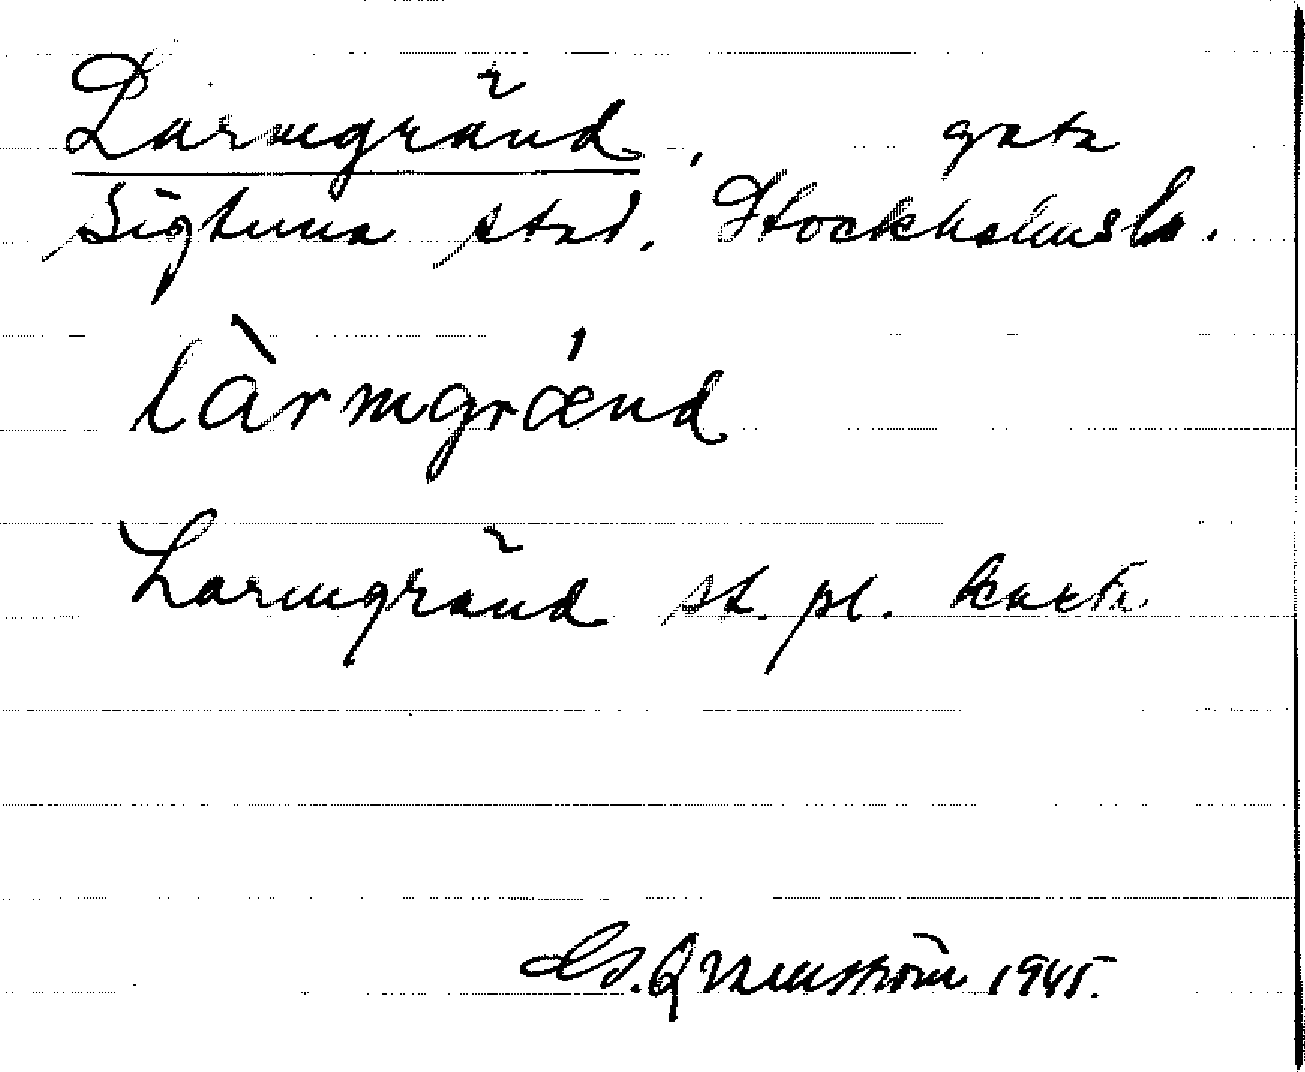 Larmgränd, gata
Sigtuna stad, Stockholmsln.
làrmgrǽnd
Larmgränd st. pl. karta.
Gs. Qvarnström 1945.